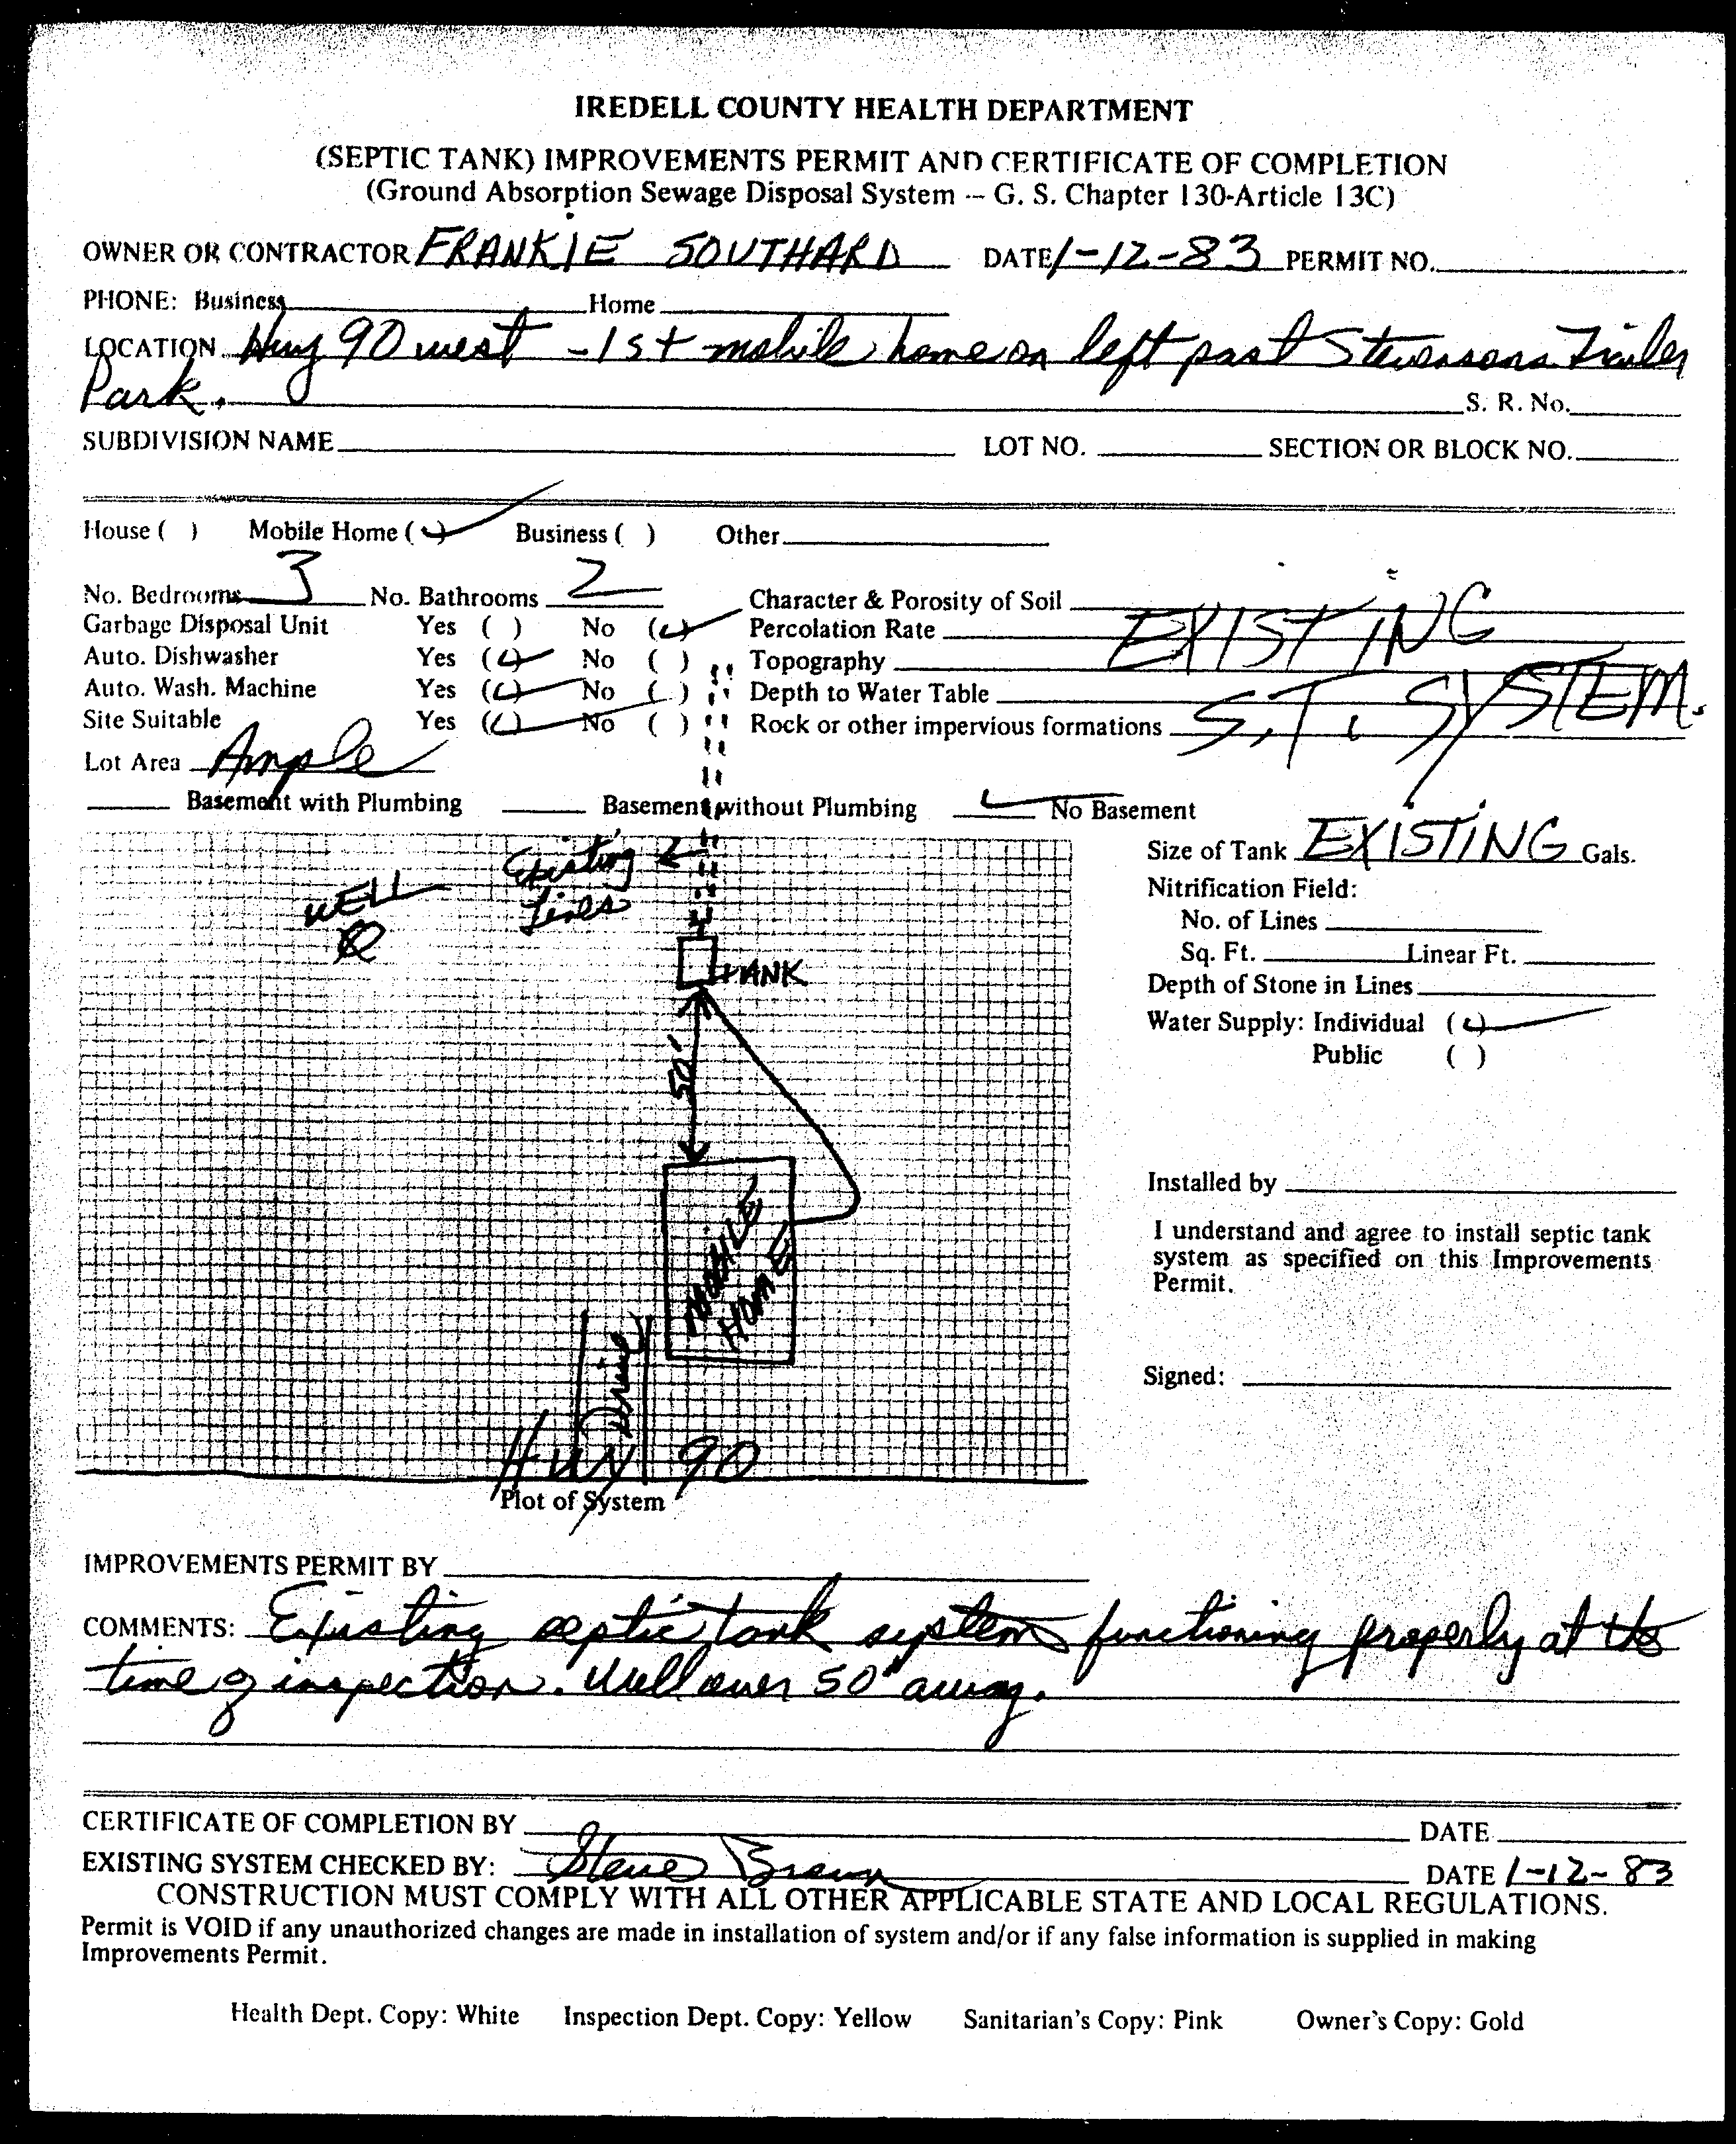 IREDELL COUNTY HEALTH DEPARTMENT
(SEPTIC TANK) IMPROVEMENTS PERMIT AND CERTIFICATE OF COMPLETION
(Ground Absorption Sewage Disposal System -- G. S. Chapter 130-Article 13C)
OWNER OR CONTRACTOR FRANKIE SOUTHARD DATE 1-12-83 PERMIT NO.
PHONE: Business Home
LOCATION Hwy 90 west - 1st mobile home on left past Stevensons Trailer
Park. S. R. No.
SUBDIVISION NAME LOT NO. SECTION OR BLOCK NO.
House ( ) Mobile Home (✓) Business ( ) Other
No. Bedrooms 3 No. Bathrooms 2 Character & Porosity of Soil EXISTING
Garbage Disposal Unit Yes ( ) No (✓) Percolation Rate
Auto. Dishwasher Yes (✓) No ( ) Topography
Auto. Wash. Machine Yes (✓) No ( ) Depth to Water Table S.T. SYSTEM.
Site Suitable Yes (✓) No ( ) Rock or other impervious formations
Lot Area Ample
Basement with Plumbing Basement without Plumbing ✓ No Basement
Existing
Lines
WELL
TANK
50'
MOBILE
HOME
Drive
Hwy 90
Plot of System
Size of Tank EXISTING Gals.
Nitrification Field:
No. of Lines
Sq. Ft. Linear Ft.
Depth of Stone in Lines
Water Supply: Individual (✓)
Public ( )
Installed by
I understand and agree to install septic tank
system as specified on this Improvements
Permit.
Signed:
IMPROVEMENTS PERMIT BY
COMMENTS: Existing septic tank system functioning properly at the
time of inspection. Well over 50' away.
CERTIFICATE OF COMPLETION BY DATE
EXISTING SYSTEM CHECKED BY: Steve Brown DATE 1-12-83
CONSTRUCTION MUST COMPLY WITH ALL OTHER APPLICABLE STATE AND LOCAL REGULATIONS.
Permit is VOID if any unauthorized changes are made in installation of system and/or if any false information is supplied in making
Improvements Permit.
Health Dept. Copy: White Inspection Dept. Copy: Yellow Sanitarian's Copy: Pink Owner's Copy: Gold